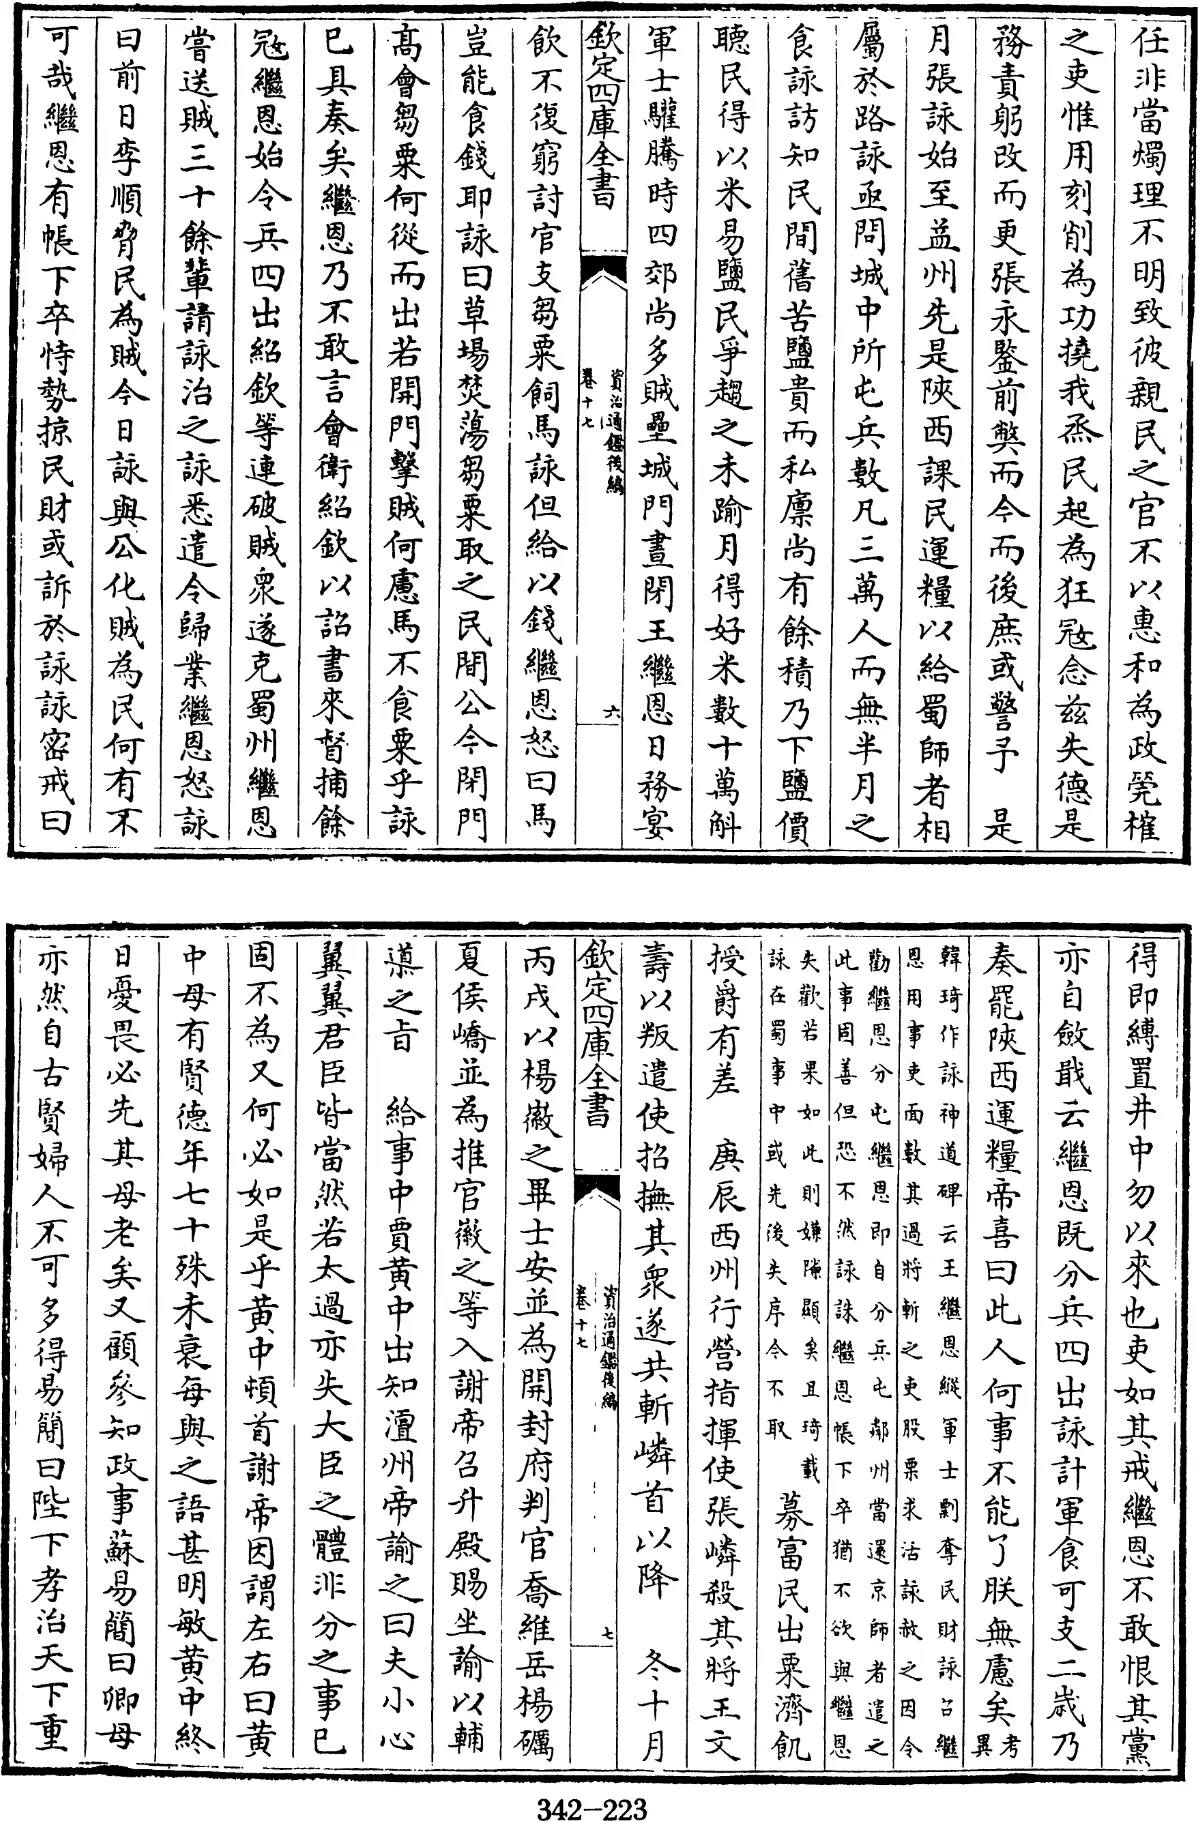 任非當燭理不明致彼親民之官不以惠和為政筦榷
之吏惟用刻削為功撓我烝民起為狂冦念兹失德是
務責躬改而更張永鑒前弊而今而後庶或警予　是
月張詠始至益州先是陝西課民運糧以給蜀師者相
屬於路詠亟問城中所屯兵數凡三萬人而無半月之
食詠訪知民間舊苦鹽貴而私廪尚有餘積乃下鹽價
聽民得以米易鹽民爭趨之未踰月得好米數十萬斛
軍士驩騰時四郊尚多賊壘城門晝閉王繼恩日務宴
欽定四庫全書
資治通鑑後編
卷十七
六
飲不復窮討官支芻粟飼馬詠但給以錢繼恩怒曰馬
豈能食錢耶詠曰草場焚蕩芻粟取之民間公今閉門
髙會芻粟何從而出若開門擊賊何慮馬不食粟乎詠
已具奏矣繼恩乃不敢言會衛紹欽以詔書來督捕餘
冦繼恩始令兵四出紹欽等連破賊衆遂克蜀州繼恩
嘗送賊三十餘輩請詠治之詠悉遣令歸業繼恩怒詠
曰前日李順脅民為賊今日詠與公化賊為民何有不
可哉繼恩有帳下卒恃勢掠民財或訴於詠詠密戒曰
得即縛置井中勿以來也吏如其戒繼恩不敢恨其黨
亦自斂戢云繼恩既分兵四出詠計軍食可支二歳乃
奏罷陝西運糧帝喜曰此人何事不能了朕無慮矣考異
韓琦作詠神道碑云王繼恩縱軍士剽奪民財詠召繼
恩用事吏面數其過將斬之吏股栗求活詠赦之因令
勸繼恩分屯繼恩即自分兵屯鄰州當還京師者遣之
此事固善但恐不然詠誅繼恩帳下卒猶不欲與繼恩
失歡若果如此則嫌隙顯矣且琦載
詠在蜀事中或先後失序今不取
募富民出粟濟飢
授爵有差　庚辰西州行營指揮使張嶙殺其將王文
壽以叛遣使招撫其衆遂共斬嶙首以降　冬十月
欽定四庫全書
資治通鑑後編
卷十七
七
丙戌以楊徽之畢士安並為開封府判官喬維岳楊礪
夏侯嶠並為推官徽之等入謝帝召升殿賜坐諭以輔
導之旨　給事中賈黄中出知澶州帝諭之曰夫小心
翼翼君臣皆當然若太過亦失大臣之體非分之事已
固不為又何必如是乎黄中頓首謝帝因謂左右曰黄
中母有賢德年七十殊未衰每與之語甚明敏黄中終
日憂畏必先其母老矣又顧參知政事蘇易簡曰卿母
亦然自古賢婦人不可多得易簡曰陛下孝治天下重
342-223